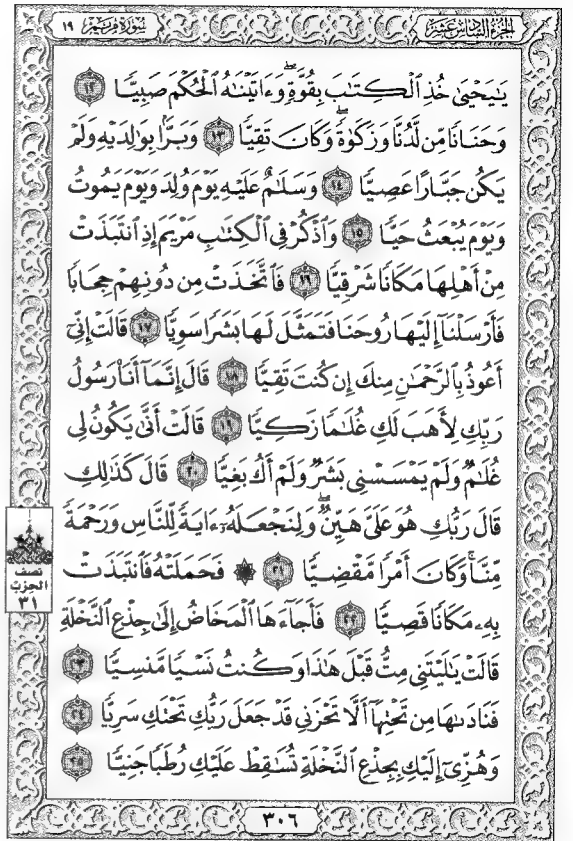 الجزء السادس عشر
سورة مريم ١٩
يَـٰيَحْيَىٰ خُذِ ٱلْكِتَـٰبَ بِقُوَّةٍۖ وَءَاتَيْنَـٰهُ ٱلْحُكْمَ صَبِيًّا ١٢
وَحَنَانًا مِّن لَّدُنَّا وَزَكَوٰةًۖ وَكَانَ تَقِيًّا ١٣ وَبَرًّۢا بِوَٰلِدَيْهِ وَلَمْ
يَكُن جَبَّارًا عَصِيًّا ١٤ وَسَلَـٰمٌ عَلَيْهِ يَوْمَ وُلِدَ وَيَوْمَ يَمُوتُ
وَيَوْمَ يُبْعَثُ حَيًّا ١٥ وَٱذْكُرْ فِى ٱلْكِتَـٰبِ مَرْيَمَ إِذِ ٱنتَبَذَتْ
مِنْ أَهْلِهَا مَكَانًا شَرْقِيًّا ١٦ فَٱتَّخَذَتْ مِن دُونِهِمْ حِجَابًا
فَأَرْسَلْنَآ إِلَيْهَا رُوحَنَا فَتَمَثَّلَ لَهَا بَشَرًا سَوِيًّا ١٧ قَالَتْ إِنِّىٓ
أَعُوذُ بِٱلرَّحْمَـٰنِ مِنكَ إِن كُنتَ تَقِيًّا ١٨ قَالَ إِنَّمَآ أَنَا۠ رَسُولُ
رَبِّكِ لِأَهَبَ لَكِ غُلَـٰمًا زَكِيًّا ١٩ قَالَتْ أَنَّىٰ يَكُونُ لِى
غُلَـٰمٌ وَلَمْ يَمْسَسْنِى بَشَرٌ وَلَمْ أَكُ بَغِيًّا ٢٠ قَالَ كَذَٰلِكِ
قَالَ رَبُّكِ هُوَ عَلَىَّ هَيِّنٌۖ وَلِنَجْعَلَهُۥٓ ءَايَةً لِّلنَّاسِ وَرَحْمَةً
مِّنَّاۚ وَكَانَ أَمْرًا مَّقْضِيًّا ٢١ ۞ فَحَمَلَتْهُ فَٱنتَبَذَتْ
بِهِۦ مَكَانًا قَصِيًّا ٢٢ فَأَجَآءَهَا ٱلْمَخَاضُ إِلَىٰ جِذْعِ ٱلنَّخْلَةِ
قَالَتْ يَـٰلَيْتَنِى مِتُّ قَبْلَ هَـٰذَا وَكُنتُ نَسْيًا مَّنسِيًّا ٢٣
فَنَادَىٰهَا مِن تَحْتِهَآ أَلَّا تَحْزَنِى قَدْ جَعَلَ رَبُّكِ تَحْتَكِ سَرِيًّا ٢٤
وَهُزِّىٓ إِلَيْكِ بِجِذْعِ ٱلنَّخْلَةِ تُسَـٰقِطْ عَلَيْكِ رُطَبًا جَنِيًّا ٢٥
نصف
الحزب
٣١
٣٠٦